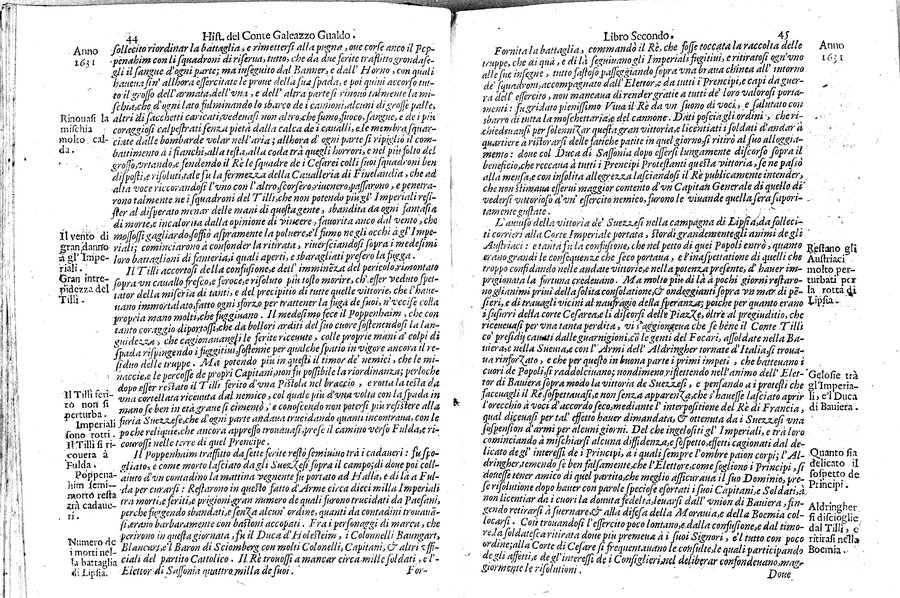 44 Hist. del Conte Galeazzo Gualdo.
Anno
1631
sollecito riordinar la battaglia, e rimettersi alla pugna, oue corse anco il Pep-
penahim con li squadroni di riserua, tutto, che da due ferite trafitto grondasse-
gli il sangue d'ogni parte; ma inseguito dal Banner, e dall' Horno, con quali
haueua sin' allhora essercitate le proue della sua spada, e poi quiui accorso tut-
to il grosso dell'armata, dell'vna, e dell' altra partesi rinouò talmente la mi-
schia, che d'ogni lato fulminando lo sbarco de i cannoni, alcuni di grosse palle,
altri di sacchetti caricati, vedeuasi non altro, che fumo, fuoco, sangue, e de i più
coraggiosi calpestrati senza pietà dalla calca de i caualli, e le membra squar-
ciate dalle bombarde volar nell'aria; allhora d'ogni parte si ripigliò il com-
battimento à i fianchi, alla testa, alla coda trà quegli horrori, e nel più folto del
grosso, vrtando, e fendendo il Rè le squadre de i Cesarei colli suoi squadroni ben
disposti, e risoluti, tale fu la fermezza della Caualleria di Finelandia, che ad
alta voce riccordandosi l'vno con l'altro, scorsero, riuennero, passarono, e penetra-
rono talmente ne i squadroni del Tilli, che non potendo più gl' Imperiali resi-
ster al disperato menar delle mani di questa gente, sbandita da ogni fantasia
di morte, e incalorita dalla opinione di vincere, fauorita anco dal vento, che
mossosi gagliardo, soffiò aspramente la poluere, e'l fumo negli occhi à gl'Impe-
riali; cominciarono à confonder la ritirata, riuersciandosi sopra i medesimi
loro battaglioni di fanteria, i quali aperti, e sbaragliati presero la fugga.
Rinouasi la
mischia
molto cal-
da.
Il vento dì
gran danno
à gl' Impe-
riali.
Gran intre-
pidezza del
Tilli.
Il Tilli accortosi della confusione, e dell' imminẽza del pericolo, rimontato
sopra vn cauallo fresco, e feroce, e risoluto più tosto morire, ch'esser veduto spet-
tator della miseria di tanti, e del precipitio di tutte quelle vittorie, che l'haue-
uano immortalato, fatto ogni sforzo per trattener la fuga de' suoi, n'vccise colla
propria mano molti, che fuggiuano. Il medesimo fece il Poppenhaim, che con
tanto coraggio diportossi, che da bollori arditi del suo cuore sostenendosi la lan-
guidezza, che cagionauangli le ferite riceuute, colle proprie mani à colpi di
spada rispingendo i fuggitiui, sostenne per qualche spatio in vigore ancora il re-
siduo delle truppe. Mà potendo più in questi il timor de' nemici, che le mi-
naccie, e le percosse de proprij Capitani, non fu possibile la riordinanza; perloche
dopo esser restato il Tilli ferito d'vna Pistola nel braccio, e rotta la testa da
vna cortellata riceuuta dal nemico, col quale più d'vna volta con la spada in
mano se ben in età graue si cimentò, e conoscendo non potersi più resistere alla
furia Suezzese, che d'ogni parte andaua trucidando quanti incontraua, con le
poche reliquie, che ancora appresso trouauasi, prese il camino verso Fulda, e ri-
courossi nelle terre di quel Prencipe.
Il Tilli feri-
to non si
perturba.
Imperiali
sono rotti.
Il Tilli si ri-
couera à
Fulda.
Il Poppenhaim trafitto da sette ferite restò semiuiuo trà i cadaueri: fu spo-
gliato, e come morto lasciato da gli Suezzesi sopra il campo; di doue poi coll-
aiuto d'vn contadino la matina vegnente fu portato ad Halla, e di là à Ful-
da per curarsi: Restarono in questo fatto d'Arme circa dieci milla Imperiali
tra morti, e feriti, e prigioni, gran numero de quali furono trucidati da Paesani,
perche fuggendo sbandati, e senza alcun' ordine, quanti da contadini trouauã-
si, erano barbaramente con bastoni accopati. Fra i personaggi di marca, che
perirono in questa giornata, fu il Duca d'Holesteim, i Colonnelli Baungart,
Blancvrt, e'l Baron di Sciomberg con molti Colonelli, Capitani, & altri offi-
ciali del partito Cattolico. Il Rè trouossi à mancar circa mille soldati, e'l
Elettor di Sassonia quattro milla de suoi.
Poppena-
him semi-
mortò resta
trà cadaue-
ri.
Numero de
i morti nel-
la battaglia
di Lipsia.
For-
Libro Secondo. 45
Anno
1631
Fornita la battaglia, commandò il Rè, che fosse toccata la raccolta delle
truppe, che di quà, e di là seguiuano gl'Imperiali fugitiui, e ritiratosi ogni vno
alle sue insegne, tutto fastoso passeggiando sopra vna braua chinea all' intorno
de' squadroni, accompagnato dall' Elettore, e da tutti i Principi, e capi da guer-
ra dell'essercito, non mancaua di render gratie à tutti de'loro valorosi porta-
menti: fu gridato pienissimo Viua il Rè da vn suono di voci, e salutato con
sbarro di tutta la moschettaria, e del cannone. Dati poscia gli ordini, che ri-
chiedeuansi per solennizar questa gran vittoria, e licentiati i soldati d'andar à
quartiero à ristorarsi delle fatiche patite in quel giorno, si ritirò al suo alloggia-
mento: doue col Duca di Sassonia dopo essersi lungamente discorso sopra il
beneficio, che reccaua à tutti i Prencipi Protestanti questa vittoria, se ne passò
alla mensa, e con insolita allegrezza lasciandosi il Rè publicamente intender,
che non stimaua essersi maggior contento d'vn Capitan Generale di quello di
vedersi vittorioso d'vn' essercito nemico, furono le viuande quella sera sapori-
tamente gustate.
L'auuiso della vittoria de' Suezzesi nella campagna di Lipsia, da solleci-
ti corrieri alla Corte Imperiale portata, stordì grandemente gli animi de gli
Austriaci: e tanta fu la confusione, che nel petto di quei Popoli entrò, quanto
erano grandi le conseguenze che seco portaua, e l'inaspettatione di quelli che
troppo confidando nelle andate vittorie, e nella potenza presente, d' hauer im-
prigionata la fortuna credeuano. Ma molto più di là à pochi giorni restaro-
no gli animi priui della solita consolatione, & ondeggianti sopra vn mar di pẽ-
sieri, e di trauagli vicini al naufragio della speranza; poiche per quanto erano
i susurri della corte Cesarea, e li discorsi delle Piazze, oltre al pregiuditio, che
riceueuasi per vna tanta perdita, vi s'aggiongeua che se bẽne il Conte Tilli
co' presidij cauati dalle guarnigioni, cõ le genti del Focari, assoldate nella Ba-
uiera, e nella Sueuia, e con l' Armi dell'Aldringher tornate d'Italia, si troua-
ua rinforzato, e che per questo in buona parte i primi impeti, che batteuano i
cuori de Popoli, si raddolciuano; nondimeno, riflettendo nell'animo dell' Elet-
tor di Bauiera sopra modo la vittoria de Suezzesi, e pensando a i protesti che
faceuagli il Rè sospettauasi, e non senza apparenza, che s'hauesse lasciato aprir
l'orecchio à voci d'accordo seco, mediante l' interpositione del Rè di Francia, al
qual diceuasi per tal' effetto hauer dimandata, & ottenuta da i Suezzesi vna
sospension d'armi per alcuni giorni. Del che ingelositi gl' Imperiali, e trà loro
cominciando à mischiarsi alcuna diffidenza, e sospetto, effetti cagionati dal de-
licato degl' interessi de i Principi, à i quali sempre l'ombre paion corpi; l'Al-
dringher, temendo se ben falsamente, che l'Elettore, come sogliono i Principi, si
donesse tener amico di quel partito, che meglio assicuraua il suo Dominio, pre-
se risolutione dopo hauer con parole speciose esortati i suoi Capitani, e Soldati, à
non licentiar da i cuori la douuta fede, d'allargarsi dall' union di Bauiera, fin-
gendo retirarsi à suernare, & alla difesa della Morauia, e della Boemia col-
locarsi. Così trouandosi l'essercito poco lontano, e dalla confusione, e dal timo-
re, la soldatesca ritirata doue più premeua à i suoi Signori, e'l tutto con poco
ordine; alla Corte di Cesare si frequentauano le consulte, le quali participando
de gli affetti, e de gl'interessi de i Consiglieri, nel deliberar confondeuano, mag-
giormente le risolutioni.
Restano gli
Austriaci
molto per-
turbati per
la rotta di
Lipsia.
Gelosie trà
gl'Imperia-
li, e'l Duca
di Bauiera.
Quanto sia
delicato il
sospetto de
Principi.
Aldringher
si discioglie
dal Tilli, e
ritirasi nella
Boemia.
Doue